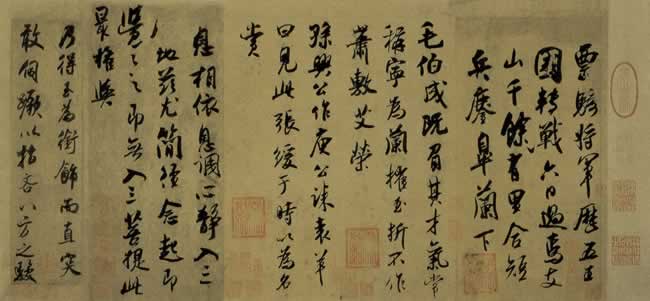 票騎將軍歷五王
國轉戰六日過焉支
山千餘有里合短
兵鏖皋蘭下
毛伯成既負其才氣常
稱寧為蘭摧玉折不作
蕭敷艾榮
孫興公作庾公誄袁羊
曰見此張緩于時以為名
賞
息相依息調心靜入三
地茲尤簡徑念起即
覺之即無入三菩提此
最捷
乃得玉為銜飾而直突
敢伺蹶以指八方之駿